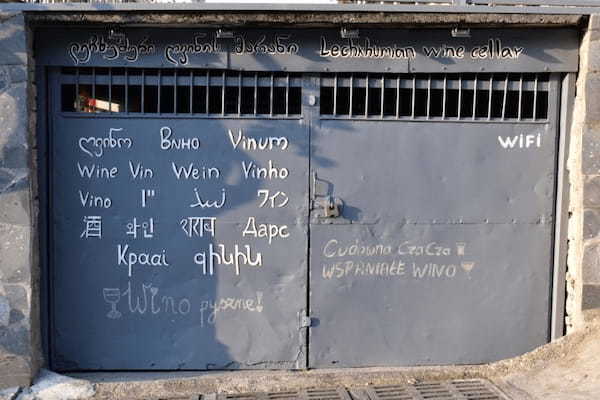 ლეჩხუმური ღვინის მარანი Lechkhumian wine cellar
ღვინო Вино Vinum
Wine Vin Wein Vinho
Vino יין نبيذ ワイン
酒 와인 शराब Дарс
Κρασί գինին
Wino pyszne!
WiFi
Cudowna CzaCza
WSPANIAŁE WINO